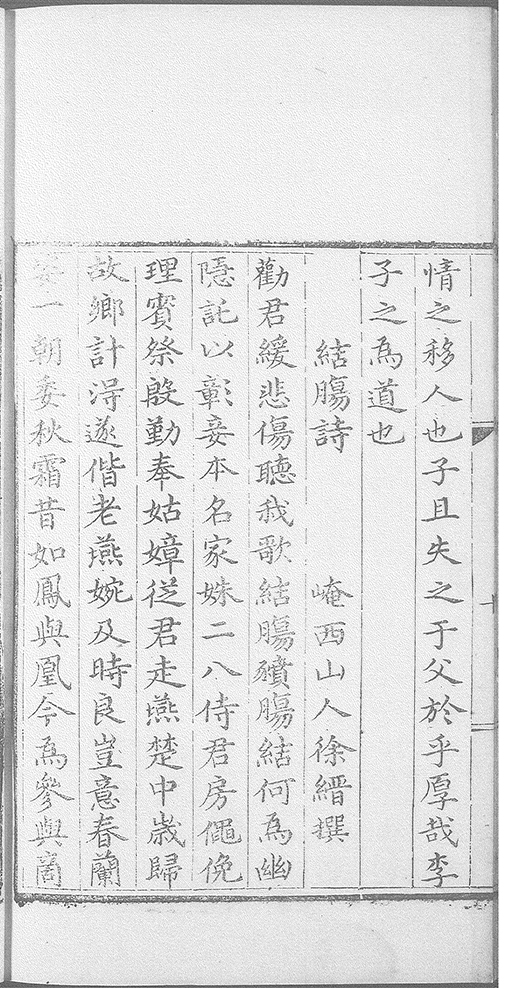 情之移人也子且失之于父於乎厚哉李
子之為道也
結腸詩　崦西山人徐縉撰
勸君緩悲傷聽我歌結腸殰腸結何為幽
隱託以彰妾本名家姝二八侍君房僶俛
理賓祭殷勤奉姑嫜從君走燕楚中歲歸
故鄉計得遂偕老燕婉及時良豈意春蘭
姿一朝委秋霜昔如鳳與凰今為參與商